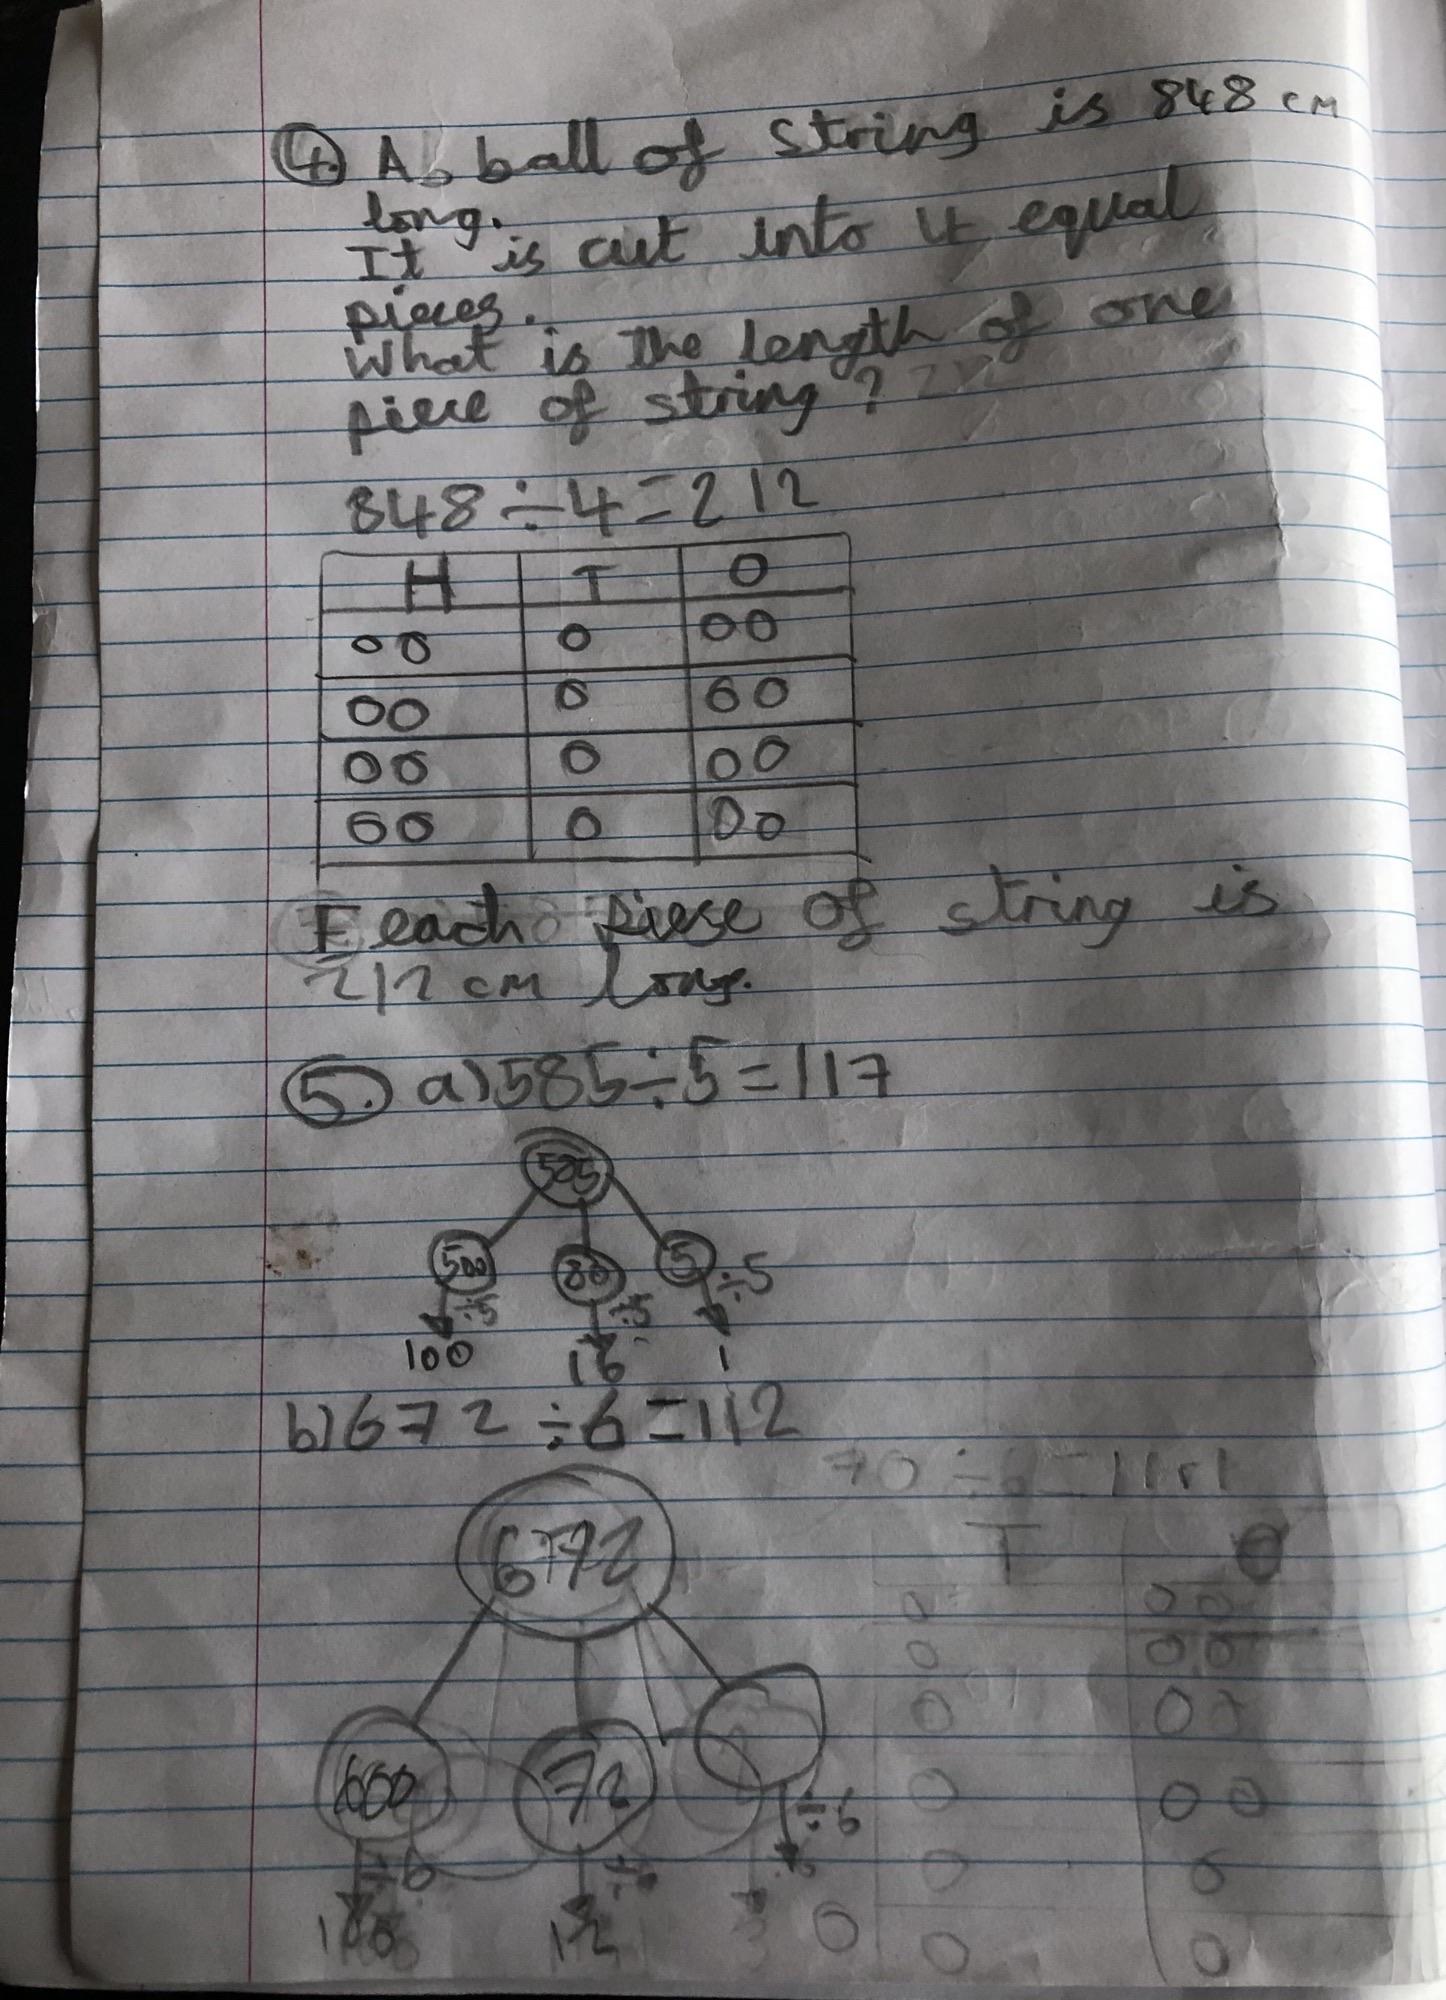 4. A ball of string is 848 cm
long.
It is cut into 4 equal
pieces.
What is the length of one
piece of string?
848 ÷ 4 = 212
H T O
00 0 00
00 0 00
00 0 00
00 0 00
each piese of string is
212 cm long.
5. a) 585 ÷ 5 = 117
585
500 80 5
÷5 ÷5 ÷5
100 16 1
b) 672 ÷ 6 = 112
70 ÷ = 11 r1
672
T O
0 00
0 00
0 00
600 72
0 00
÷6 ÷6
0 0
100 12 0
0 0